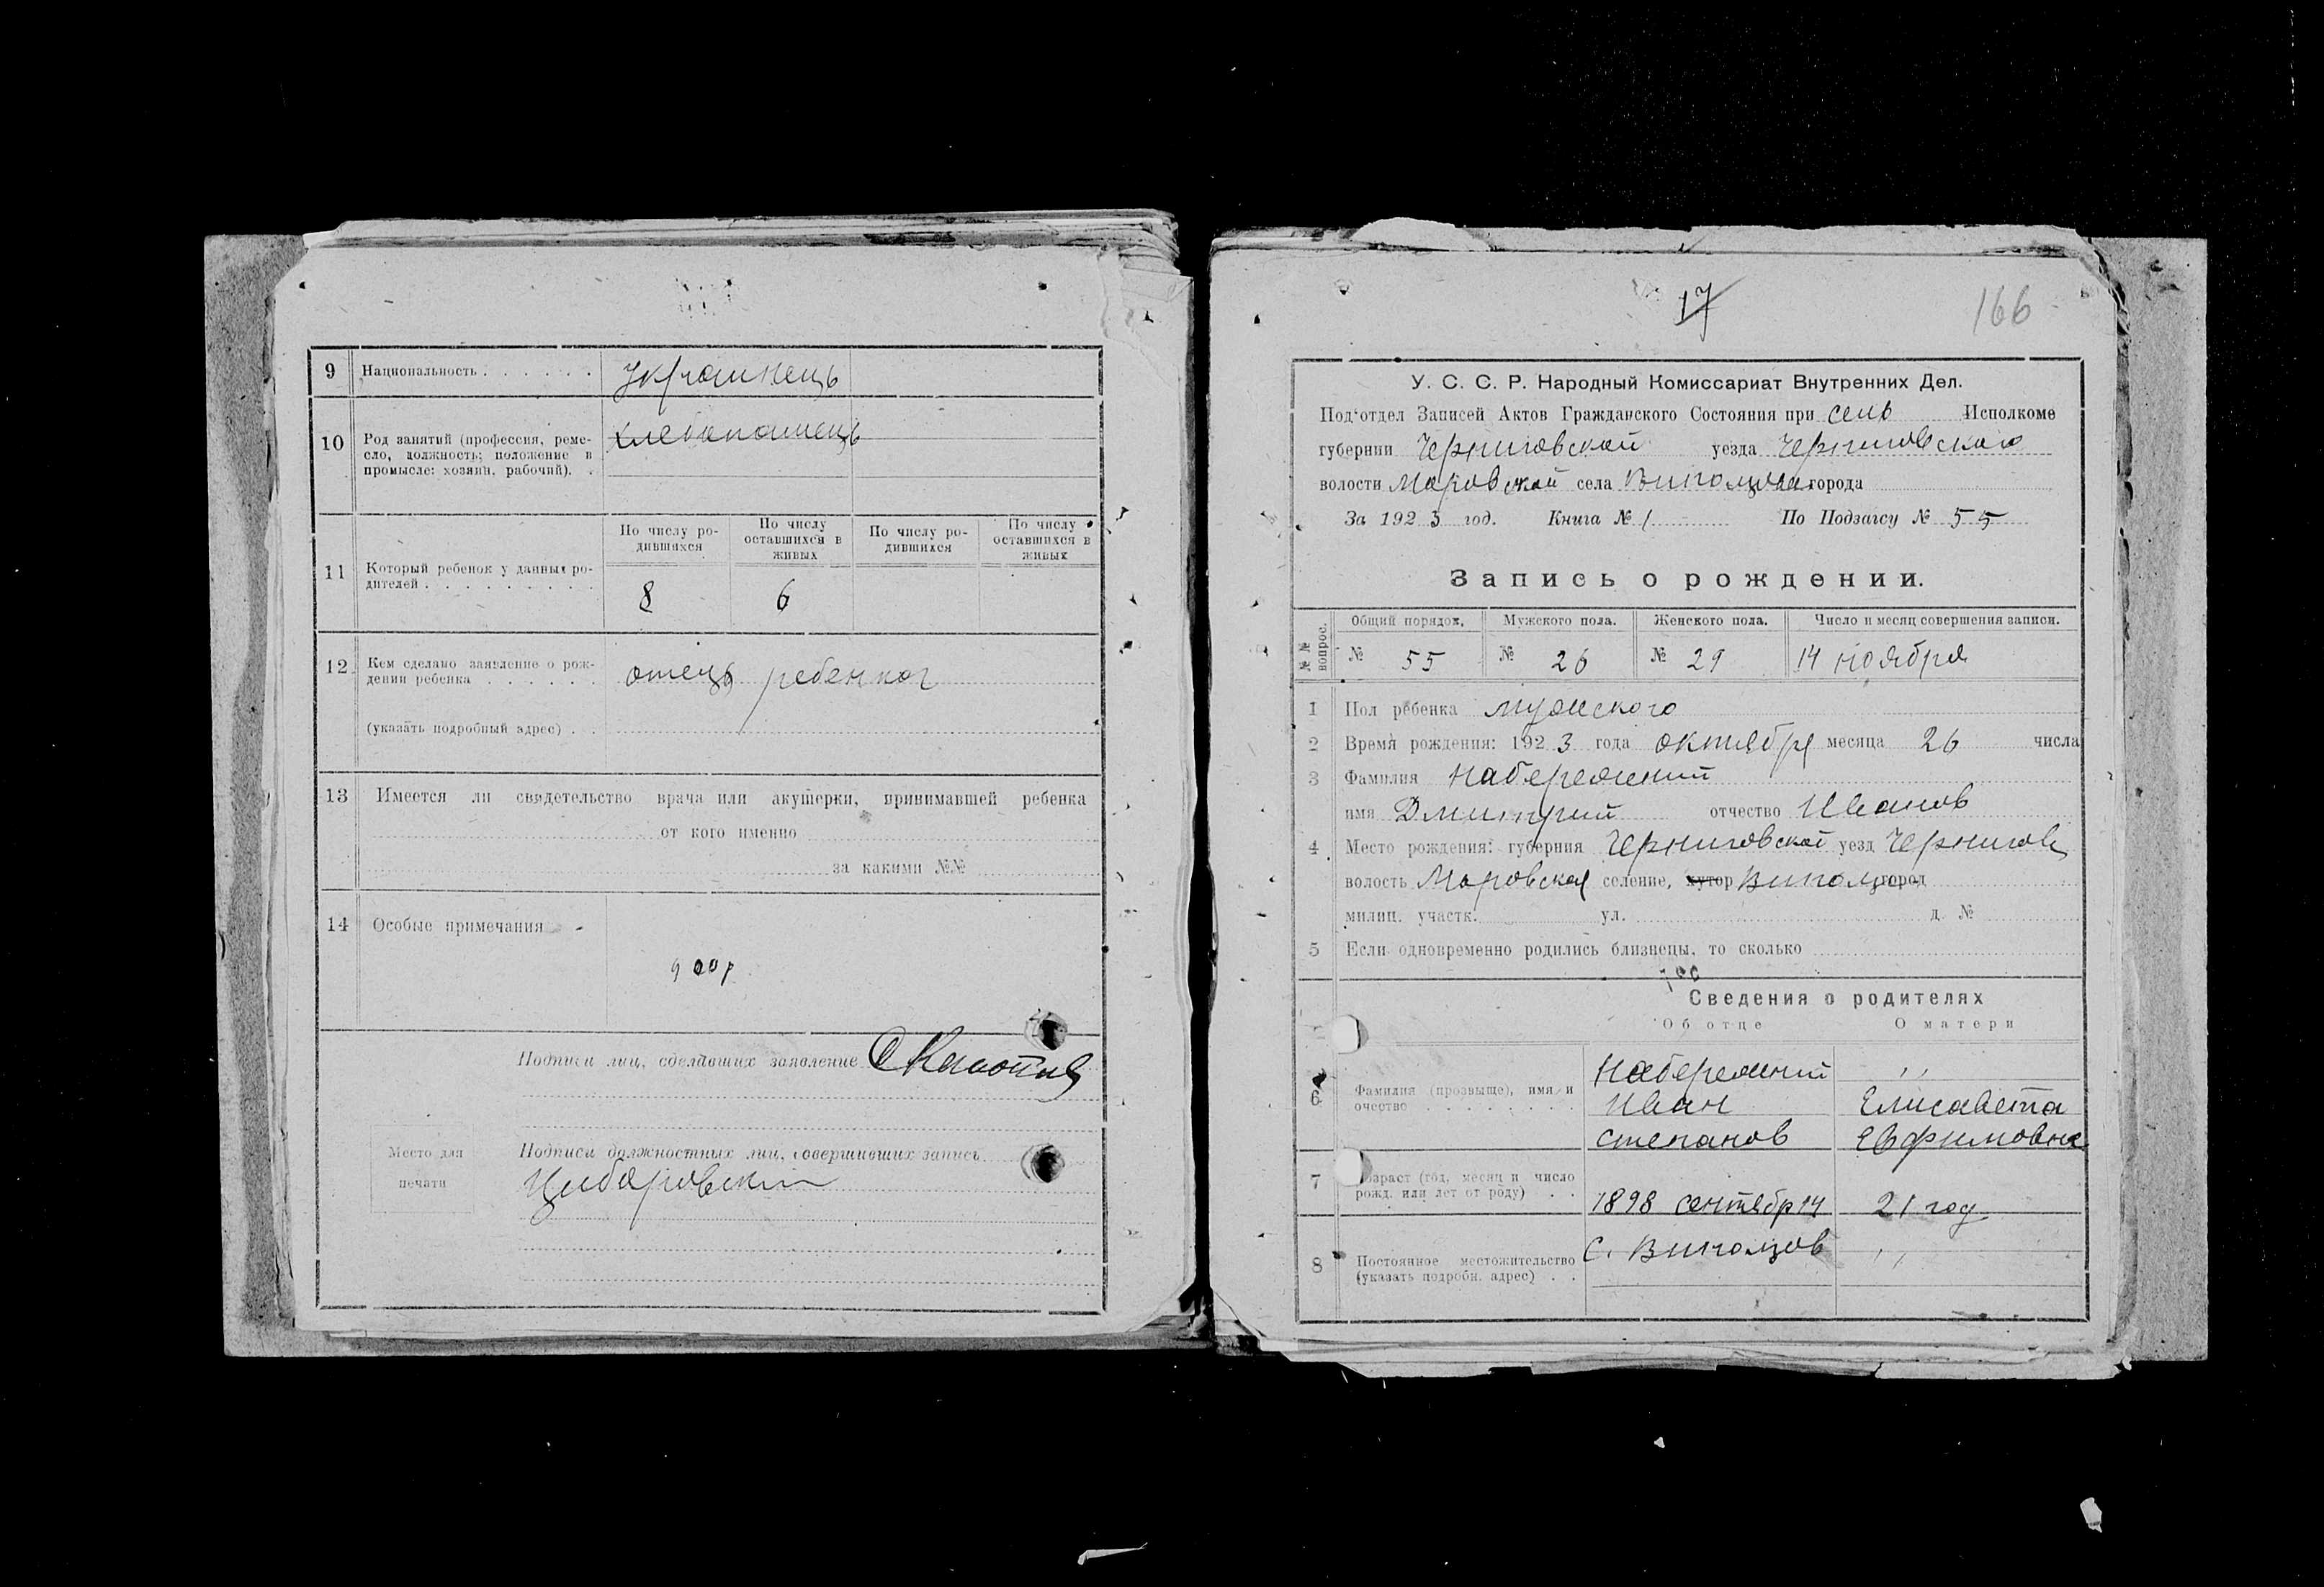 9 Национальность . . . . . . Украинець
10 Род занятий (профессия, реме-
сло, должность; положение в
промысле: хозяин, рабочий). .
Хлебопашець
По числу ро-
дившихся
По числу
оставшихся в
живых
По числу ро-
дившихся
По числу
оставшихся в
живых
11 Который ребенок у данных ро-
дителей . . . . . . . . .
8 6
12 Кем сделано заявление о рож-
дении ребенка . . . . . .
отець ребенка
(указать подробный адрес) . .
13 Имеется ли свидетельство врача или акушерки, принимавшей ребенка
от кого именно
за какими №№
14 Особые примечания
Подписи лиц, сделавших заявление
Место для
печати
Подписи должностных лиц, совершивших запись
17
166
У. С. С. Р. Народный Комиссариат Внутренних Дел.
Под'отдел Записей Актов Гражданского Состояния при сель Исполкоме
губернии Черниговской уезда Черниговского
волости Моровской села Виполцова города
За 1923 год. Книга № 1 По Подзагсу № 55
Запись о рождении.
№№ вопрос.
Общий порядок. Мужского пола. Женского пола. Число и месяц совершения записи.
№ 55 № 26 № 29 14 ноября
1 Пол ребенка мужского
2 Время рождения: 1923 года октября месяца 26 числа
3 Фамилия Набережний
имя Дмитрий отчество Иванов
4 Место рождения: губерния Черниговской уезд Чернигов
волость Моровская селение, хутор Виполцов город
милиц. участк. ул. д. №
5 Если одновременно родились близнецы, то сколько
Сведения о родителях
Об отце О матери
6 Фамилия (прозвыще), имя и
очество . . . . . . . .
Набережний ,,
Иван Елисавета
Степанов Евфимовна
7 Возраст (год, месяц и число
рожд. или лет от роду) . .
1898 сентябр 14 21 год
8 Постоянное местожительство
(указать подробн. адрес) . .
с. Виполцов ,,